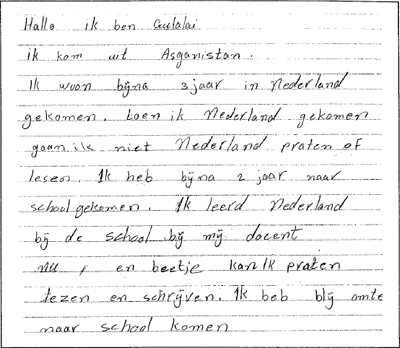 Hallo ik ben Gulalai
ik kom uit Asganistan.
Ik woon bijna 3 jaar in Nederland
gekomen. Loen ik Nederland gekomen
gaan ik niet Nederland praten of
lesen. Ik heb bijna 2 jaar naar
school gekomen. Ik leerd Nederland
bij de school bij mij docent
nu, en beetje kan Ik praten
tezen en schrijven. Ik beb blij omte
naar school komen